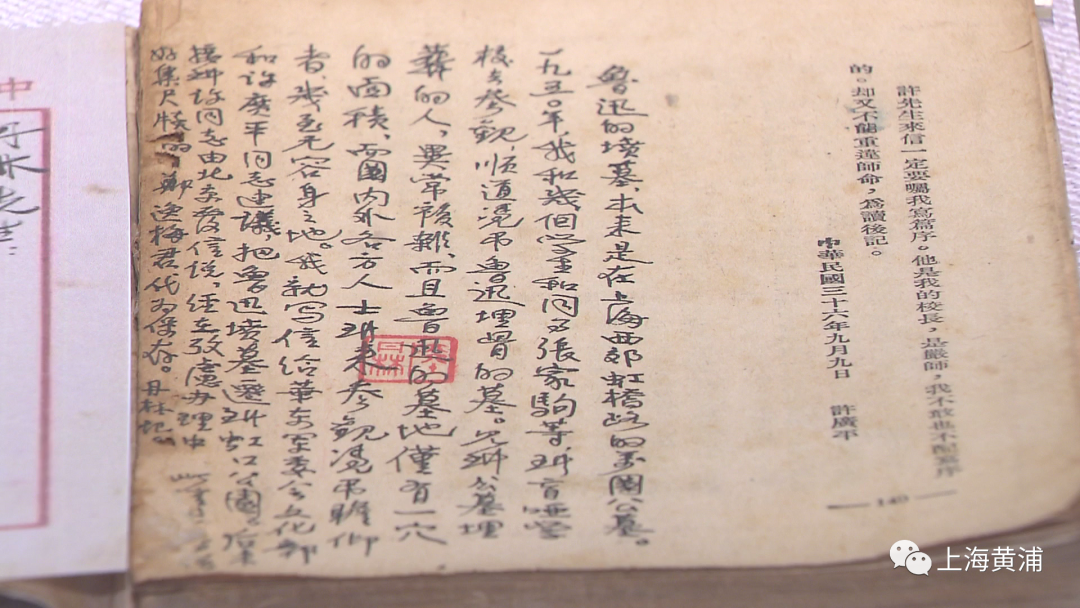 許先生來信一定要囑我寫篇序。他是我的校長，是嚴師，我不敢也不配寫序
的。却又不能重違師命，爲讀後記。
中華民國三十六年九月九日　許廣平
魯迅的墳墓，本来是在上海西郊虹橋路的万國公墓。
一九五〇年，我和幾個学生和同事張家駒等，到盲啞学
校去参觀，順道憑吊魯迅埋骨的墓。見到公墓埋
葬的人，異常複雜，而且魯迅的墓地僅有一穴
的面積，而國内外各方人士到来参觀憑吊瞻仰
者，幾至无容身之地。我就寫信给華东軍委会文化部
和許廣平同志建議，把魯迅墳墓遷到虹口公園。後来
接到許同志由北京發信说，經在攷慮办理中
好集尺牘的鄭逸梅君代为保存。丹林記
140
中
上海黄浦